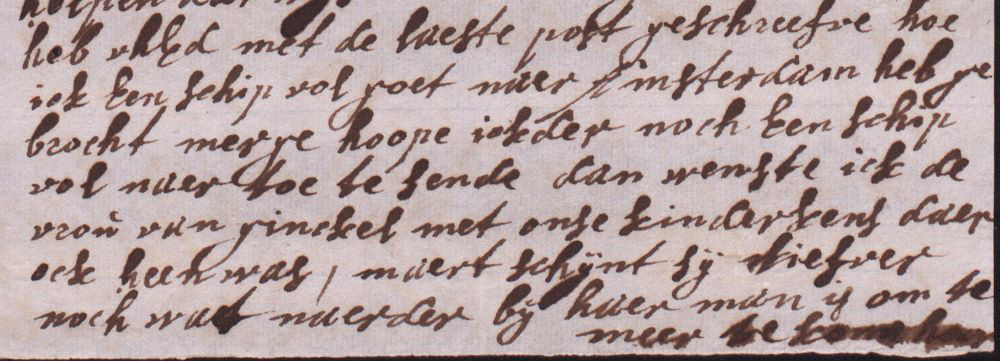 heb uhEd met de laeste post geschreefve hoe
ick een schip vol goet naer Amsterdam heb ge
brocht merge hoope ick der noch een schip
vol naer toe te sende dan wenste ick de
vrou van ginckel met onse kinderkens daer
ock heen was, maert schijnt sij liefver
noch wat naerder bij haer man is om te
meer te